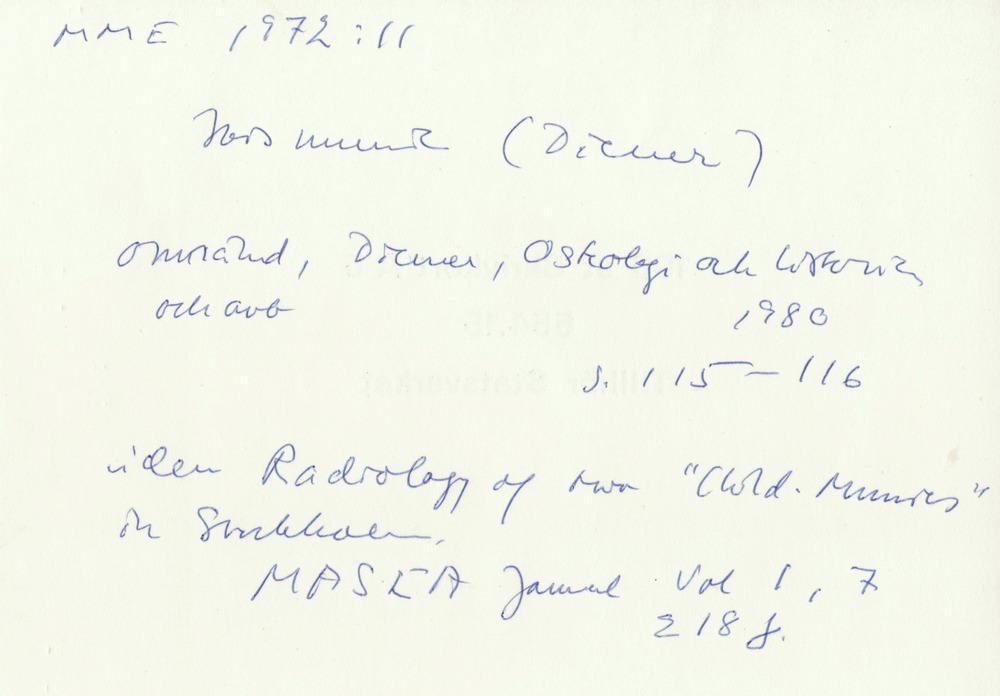 MME 1972:11
(Diener)
omnämnd, Diener, Osteologi och historia
och avb 1980
s. 115-116
iden Radiology of two "Child-Mummies"
in Stockholm.
MASCA Journal Vol 1, 7
218 f.